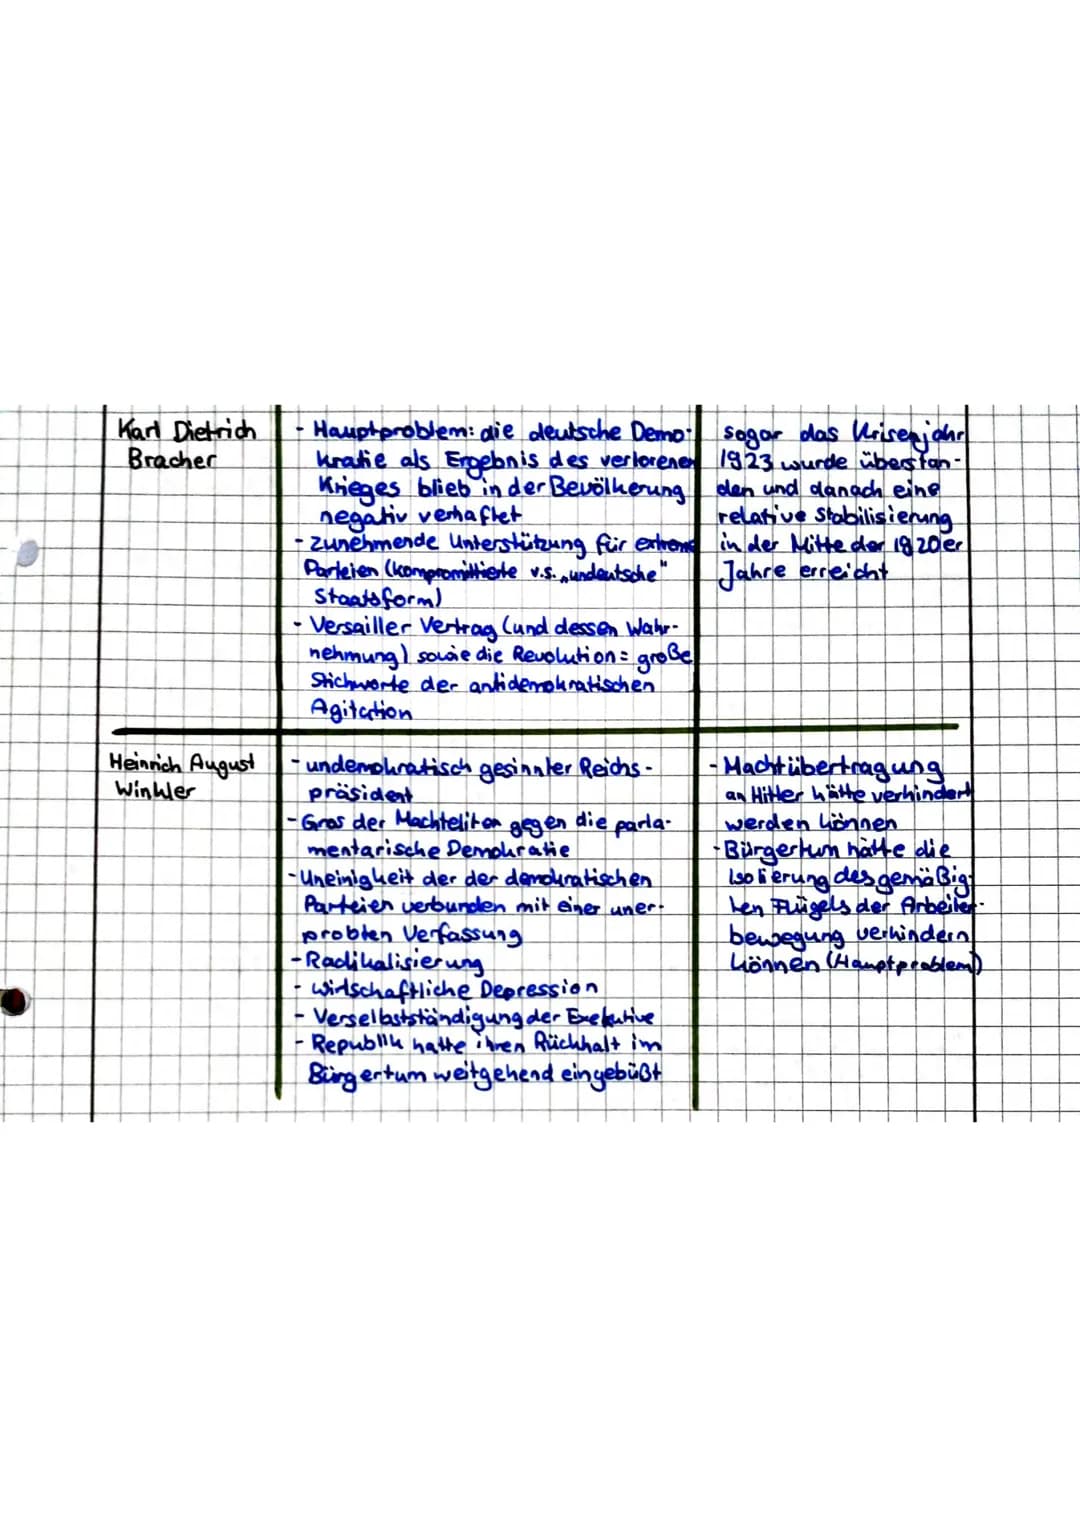 Karl Dietrich
Bracher
- Hauptproblem: die deutsche Demo-
kratie als Ergebnis des verlorenen
Krieges blieb in der Bevölkerung
negativ verhaftet
- zunehmende Unterstützung für extreme
Parteien (kompromittierte v.s. „undeutsche"
Staatsform)
- Versailler Vertrag (und dessen Wahr-
nehmung) sowie die Revolution = große
Stichworte der antidemokratischen
Agitation
sogar das Krisenjahr
1923 wurde überstan-
den und danach eine
relative Stabilisierung
in der Mitte der 1920er
Jahre erreicht
Heinrich August
Winkler
- undemokratisch gesinnter Reichs-
präsident
- Gros der Machteliten gegen die parla-
mentarische Demokratie
- Uneinigkeit der der demokratischen
Parteien verbunden mit einer uner-
probten Verfassung
- Radikalisierung
- wirtschaftliche Depression
- Verselbstständigung der Exekutive
- Republik hatte ihren Rückhalt im
Bürgertum weitgehend eingebüßt
- Machtübertragung
an Hitler hätte verhindert
werden können
- Bürgertum hätte die
Isolierung des gemäßig-
ten Flügels der Arbeiter-
bewegung verhindern
können (Hauptproblem)